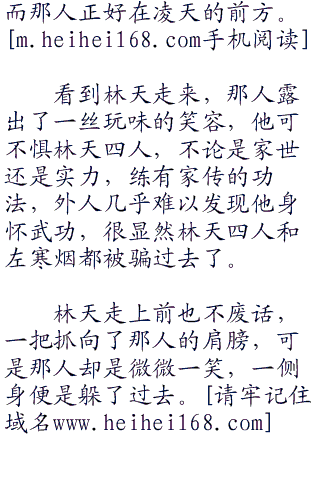 而那人正好在凌天的前方。
[m.heihei168.com手机阅读]
看到林天走来，那人露
出了一丝玩味的笑容，他可
不惧林天四人，不论是家世
还是实力，练有家传的功
法，外人几乎难以发现他身
怀武功，很显然林天四人和
左寒烟都被骗过去了。
林天走上前也不废话，
一把抓向了那人的肩膀，可
是那人却是微微一笑，一侧
身便是躲了过去。[请牢记住
域名www.heihei168.com]